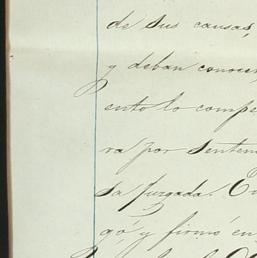 de sus causas,
y deban conocer
ento lo compe
ra por senten
sa juzgada.
gó y firmó en